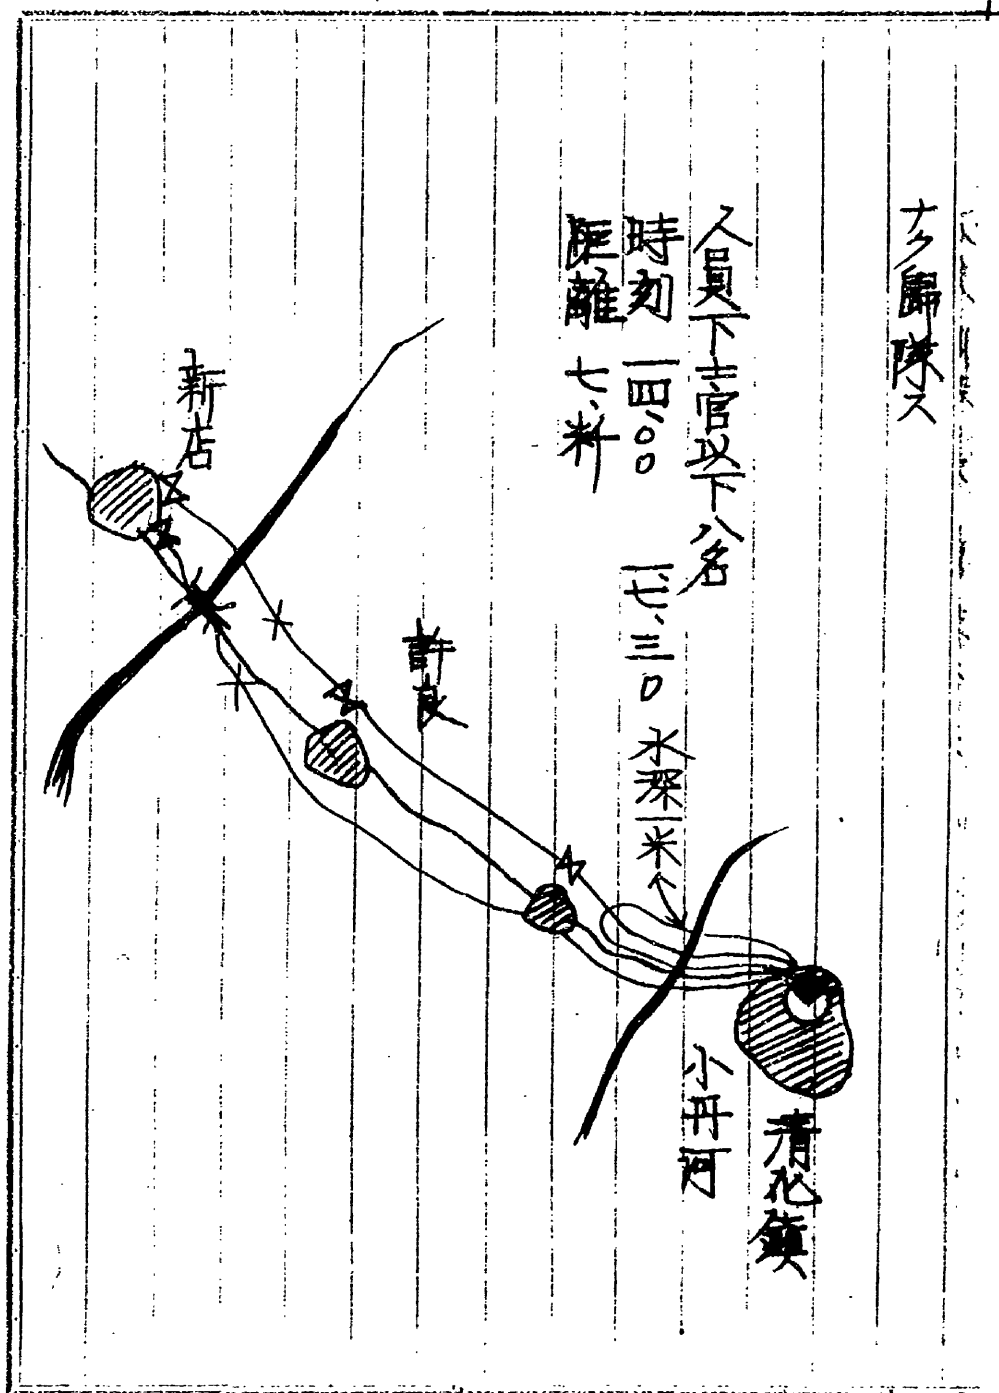 ナク歸隊ス
人員下士官以下八名
時刻 一四、〇〇 一七、三〇 水深一米
距離 七、粁
新店
許良
小丹河
清化鎮